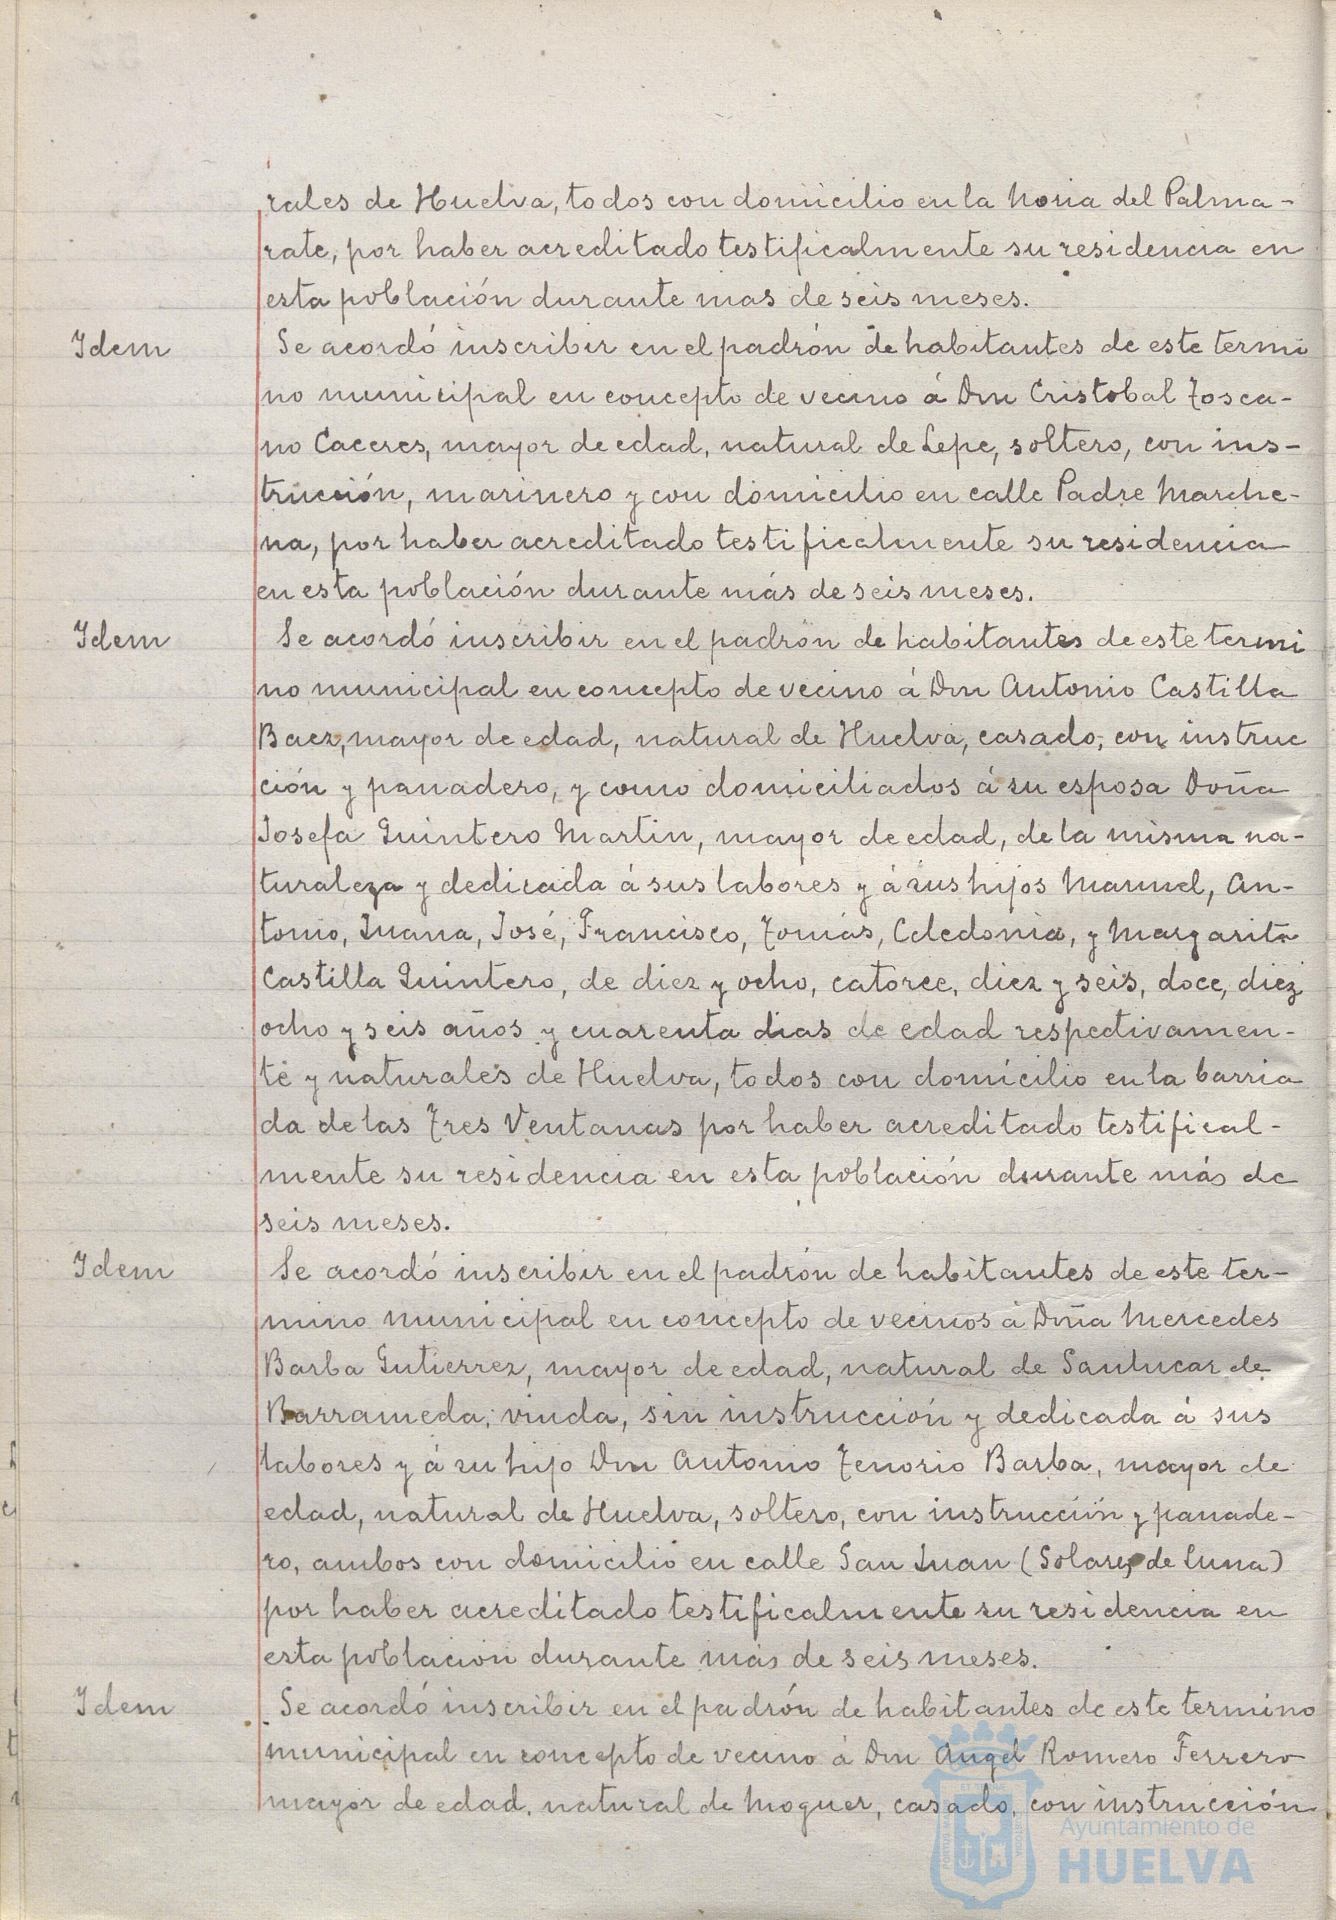 rales de Huelva, todos con domicilio en la Noria del Palma-
rate, por haber acreditado testificalmente su residencia en
esta población durante mas de seis meses.
Idem
Se acordó inscribir en el padrón de habitantes de este termi
no municipal en concepto de vecino á Don Cristobal Tosca-
no Caceres, mayor de edad, natural de Lepe, soltero, con ins-
trucción, marinero y con domicilio en calle Padre Marche-
na, por haber acreditado testificalmente su residencia
en esta población durante más de seis meses.
Idem
Se acordó inscribir en el padrón de habitantes de este termi
no municipal en concepto de vecino á Don Antonio Castilla
Baez, mayor de edad, natural de Huelva, casado, con instruc
ción y panadero, y como domiciliados á su esposa Doña
Josefa Quintero Martin, mayor de edad, de la misma na-
turaleza y dedicada á sus labores y á sus hijos Manuel, An-
tonio, Juana, José, Francisco, Tomás, Celedonia, y Margarita
Castilla Quintero, de diez y ocho, catorce, diez y seis, doce, diez
ocho y seis años y cuarenta dias de edad respectivamen-
te y naturales de Huelva, todos con domicilio en la barria
da de las Tres Ventanas por haber acreditado testifical-
mente su residencia en esta población durante más de
seis meses.
Idem
Se acordó inscribir en el padrón de habitantes de este ter-
mino municipal en concepto de vecinos á Doña Mercedes
Barba Gutierrez, mayor de edad, natural de Sanlucar de
Barrameda, viuda, sin instrucción y dedicada á sus
labores y á su hijo Don Antonio Tenorio Barba, mayor de
edad, natural de Huelva, soltero, con instrucción y panade-
ro, ambos con domicilio en calle San Juan (Solares de Luna)
por haber acreditado testificalmente su residencia en
esta poblacion durante más de seis meses.
Idem
Se acordó inscribir en el padrón de habitantes de este termino
municipal en concepto de vecino á Don Angel Romero Ferrero
mayor de edad, natural de Moguer, casado, con instrucción
Ayuntamiento de
HUELVA